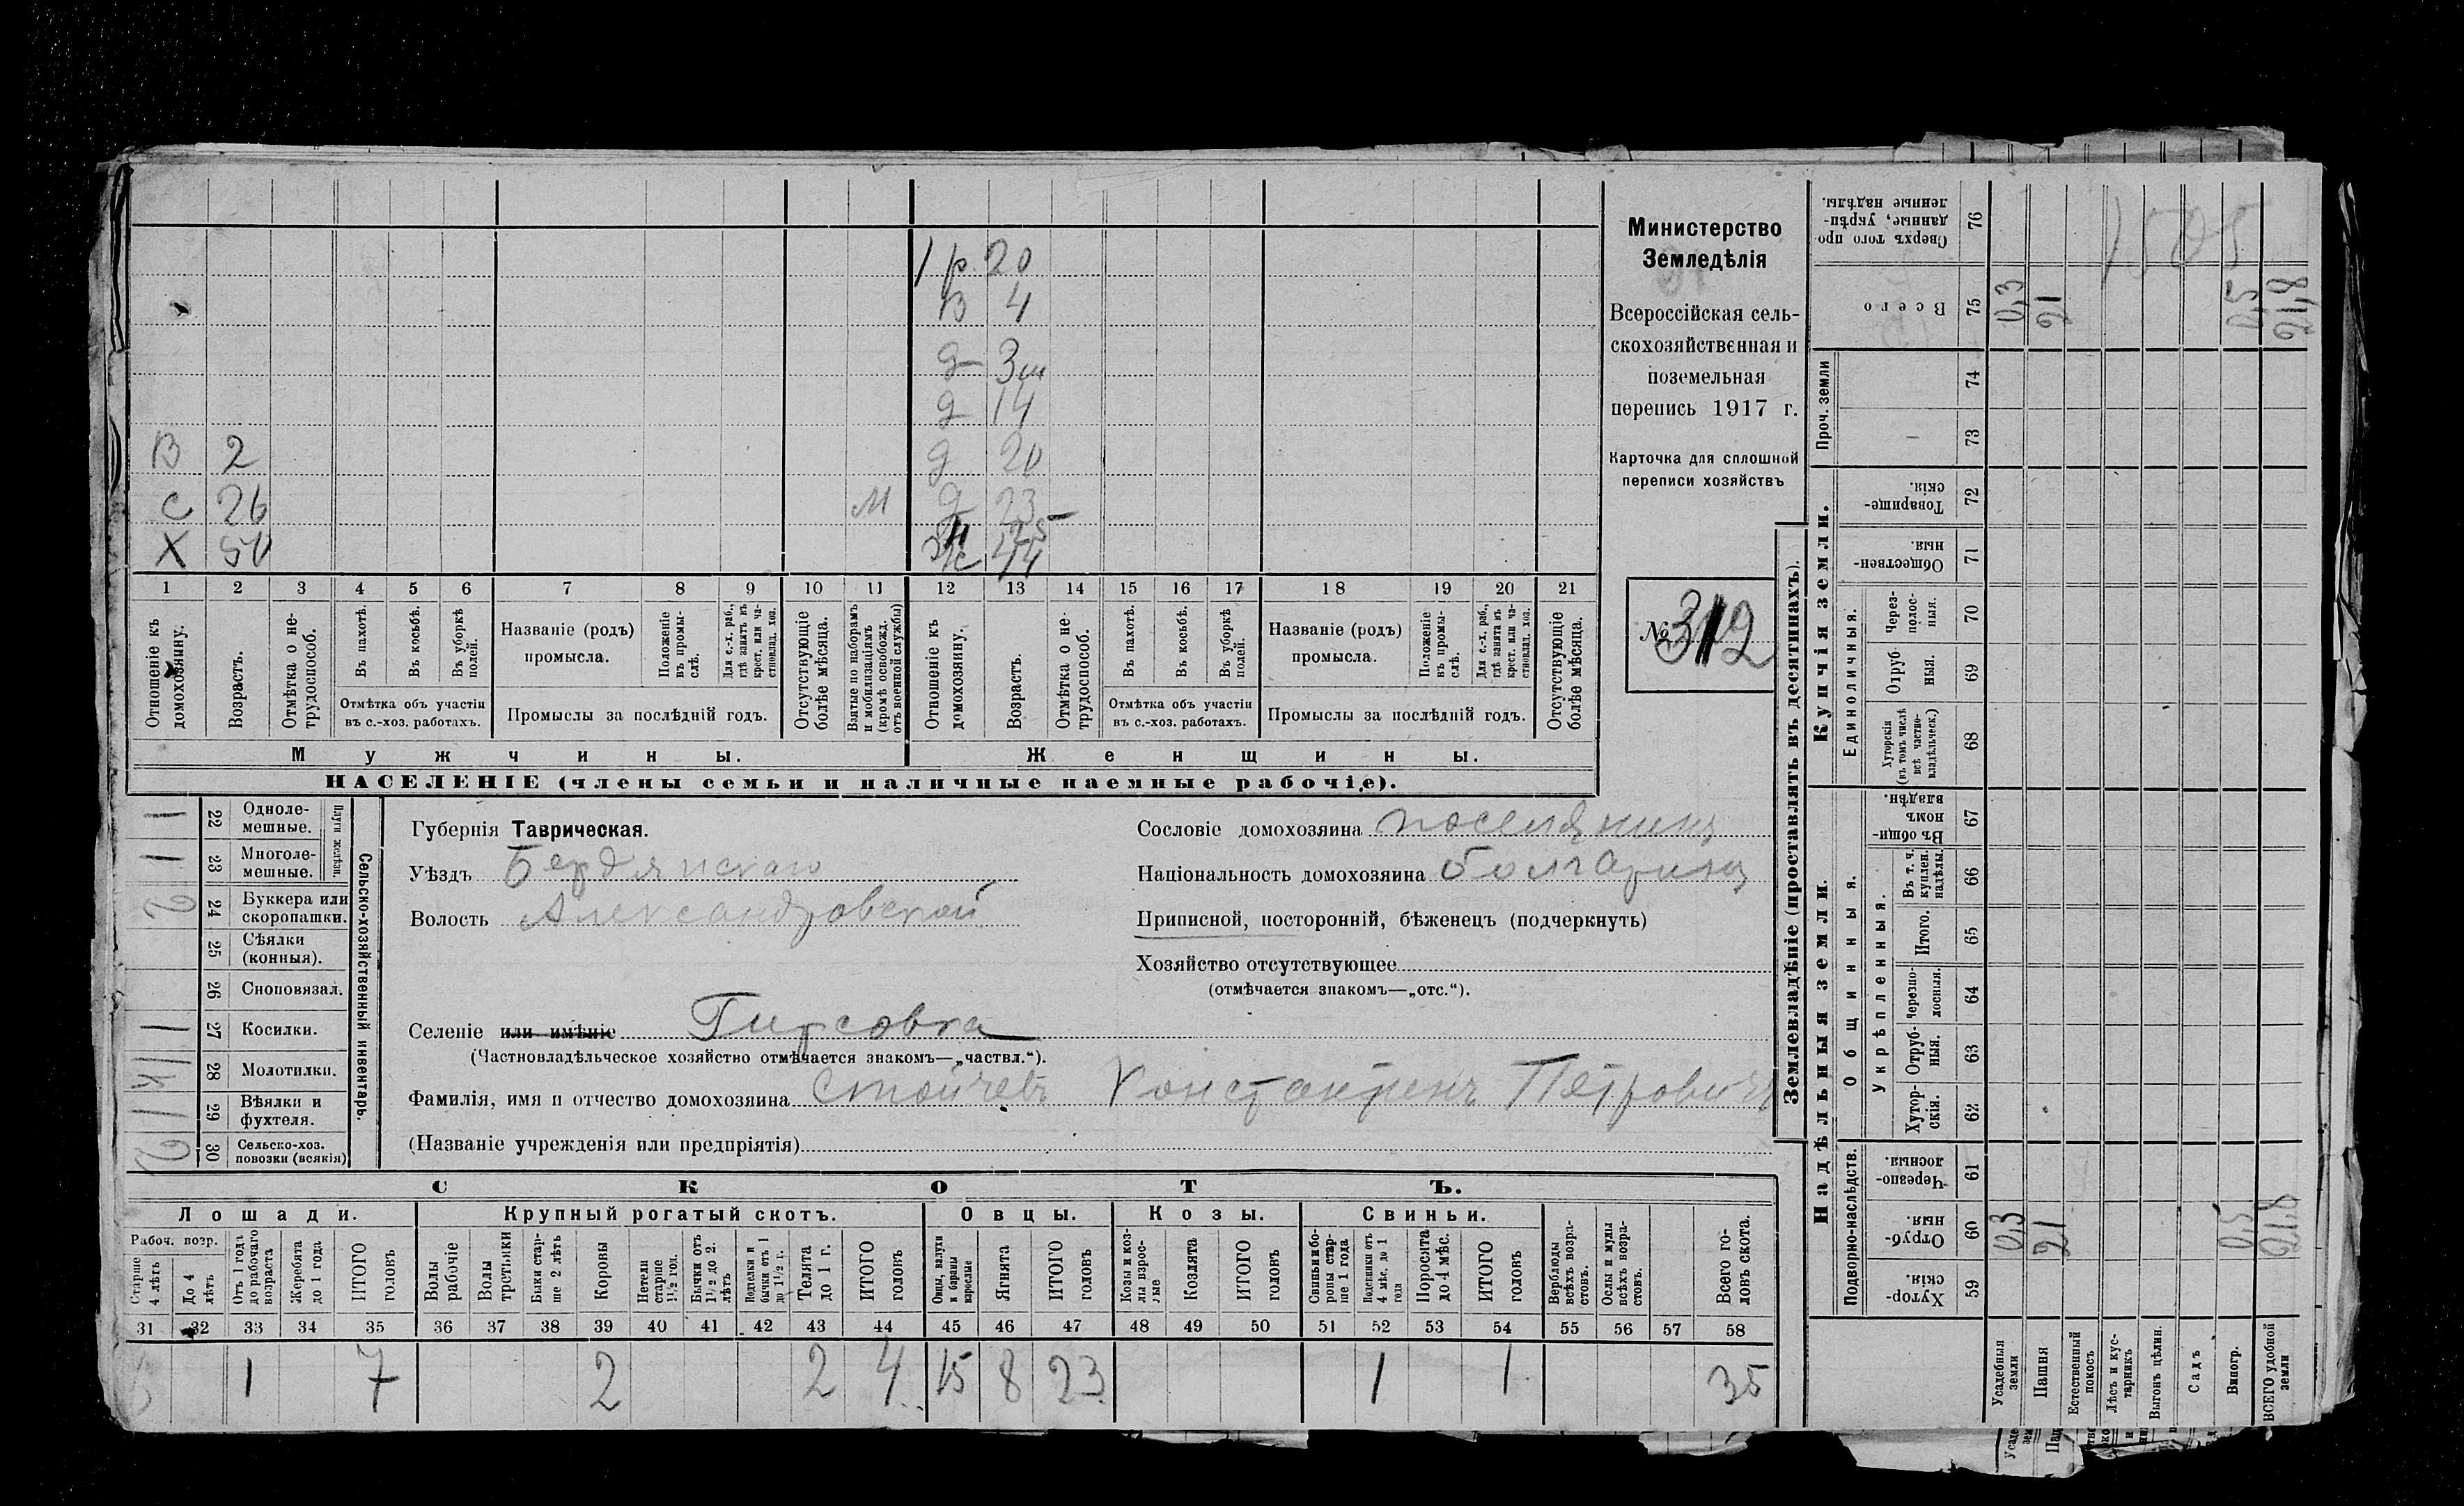 1 р. 20
В 4
д 3м
д 14
В 2 д 20
С 26 М д 23
Х 50 Ж 44
1 2 3 4 5 6 7 8 9 10 11 12 13 14 15 16 17 18 19 20 21
Отношеніе къ домохозяину.
Возрастъ.
Отмѣтка о нетрудоспособ.
Въ пахотѣ.
Въ косьбѣ.
Въ уборкѣ полей.
Отмѣтка объ участіи
въ с.-хоз. работахъ.
Названіе (родъ)
промысла.
Положеніе въ промыслѣ.
Для с.-х. раб., гдѣ занятъ въ крест. или частновлад. хоз.
Промыслы за послѣдній годъ.
Отсутствующіе болѣе мѣсяца.
Взятые по наборамъ и мобилизаціямъ (кромѣ освобожд. отъ военной службы)
Отношеніе къ домохозяину.
Возрастъ.
Отмѣтка о нетрудоспособ.
Въ пахотѣ.
Въ косьбѣ.
Въ уборкѣ полей.
Отмѣтка объ участіи
въ с.-хоз. работахъ.
Названіе (родъ)
промысла.
Положеніе въ промыслѣ.
Для с.-х. раб., гдѣ занята въ крест. или частновлад. хоз.
Промыслы за послѣдній годъ.
Отсутствующіе болѣе мѣсяца.
Мужчины.
Женщины.
НАСЕЛЕНІЕ (члены семьи и наличные наемные рабочіе).
Министерство
Земледѣлія
Всероссійская сель-
скохозяйственная и
поземельная
перепись 1917 г.
Карточка для сплошной
переписи хозяйствъ
№ 312
Сельско-хозяйственный инвентарь.
Плуги желѣзн.
1 22 Однолемешные.
1 23 Многолемешные.
2 24 Буккера или скоропашки.
25 Сѣялки (конныя).
26 Сноповязал.
1 27 Косилки.
28 Молотилки.
1 29 Вѣялки и фухтеля.
2 30 Сельско-хоз. повозки (всякія)
Губернія Таврическая.
Уѣздъ Бердянскаго
Волость Александровской
Сословіе домохозяина поселянинъ
Національность домохозяина болгаринъ
Приписной, посторонній, бѣженецъ (подчеркнуть)
Хозяйство отсутствующее
(отмѣчается знакомъ—„отс.“).
Селеніе или имѣніе Гирсовка
(Частновладѣльческое хозяйство отмѣчается знакомъ—„частвл.“).
Фамилія, имя и отчество домохозяина Стойчевъ Константинъ Петровичъ
(Названіе учрежденія или предпріятія)
СКОТЪ.
Лошади. Крупный рогатый скотъ. Овцы. Козы. Свиньи.
Рабоч. возр.
Старше 4 лѣтъ
До 4 лѣтъ
Отъ 1 года до рабочаго возраста
Жеребята до 1 года
ИТОГО головъ
Волы рабочіе
Волы третьяки
Быки старше 2 лѣтъ
Коровы
Нетели старше 1½ год.
Бычки отъ 1½ до 2. лѣтъ
Подтелки и бычки отъ 1 до 1½ г.
Телята до 1 г.
ИТОГО головъ
Овцы, валухи и бараны взрослые
Ягнята
ИТОГО головъ
Козы и козлы взрослые
Козлята
ИТОГО головъ
Свиньи и боровы старше 1 года
Подсвинки отъ 4 мѣс. до 1 года
Поросята до 4 мѣс.
ИТОГО головъ
Верблюды всѣхъ возрастовъ.
Ослы и мулы всѣхъ возрастовъ.
Всего головъ скота.
31 32 33 34 35 36 37 38 39 40 41 42 43 44 45 46 47 48 49 50 51 52 53 54 55 56 57 58
6 1 7 2 2 4 15 8 23 1 1 35
Землевладѣніе (проставлять въ десятинахъ).
Надѣльныя земли.
Купчія земли.
Проч. земли
Подворно-наслѣдств.
Общинныя.
Укрѣпленныя.
Единоличныя.
Сверхъ того проданные, укрѣпленные надѣлы. 76
Всего 75 0,3 21 0,5 21,8
74
73
Товарищескія. 72
Общественныя. 71
Черезполосныя. 70
Отрубныя. 69
Хуторскія (въ томъ числѣ всѣ частновладѣльческ.) 68
Въ общинномъ владѣн. 67
Въ т. ч. куплен. надѣлы. 66
Итого. 65
Черезполосныя. 64
Отрубныя. 63
Хуторскія. 62
Черезполосныя. 61
Отрубныя. 60 0,3 21 0,5 21,8
Хуторскія. 59
Усадебныя земли
Пашня
Естественный покосъ
Лѣсъ и кустарникъ
Выгонъ цѣлин.
Садъ
Виногр.
ВСЕГО удобной земли